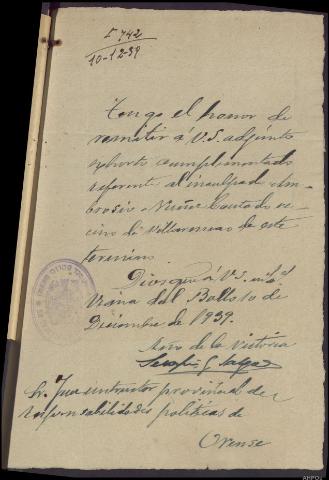 E 742
10-12-39
Tengo el honor de
remitir á V.S. adjunto
exhorto cumplimentado
referente al inculpado Am-
brosio Nuñez ve-
cino de de este
termino.
Dios gue á V.S. m. a.
Viana del Bollo 10 de
Diciembre de 1939.
Año de la Victoria
Sr. Juez instructor provincial de
responsabilidades politicas de
Orense
AHPOU